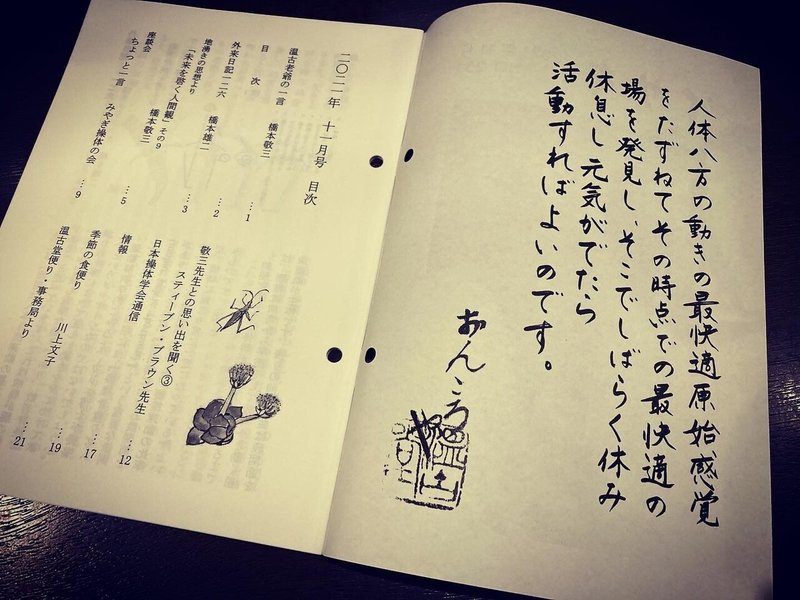 人体八方の動きの最快適原始感覚
をたずねてその時点での最快適の
場を発見し、そこでしばらく休み
休息し元気がでたら
活動すればよいのです。
おんころや
二〇二一年 十一月号 目次
温古老爺の一言 橋本敬三 …1
目 次 …2
外来日記一二六 橋本雄二 …3
地湧きの思想より
「未来を啓く人間観」その9 橋本敬三 …5
座談会
ちょっと一言 みやぎ操体の会 …9
敬三先生との思い出を聞く③
スティーブン・ブラウン先生 …12
日本操体学会通信 …17
情報 …19
季節の食便り 川上文子 …21
温古堂便り・事務局より